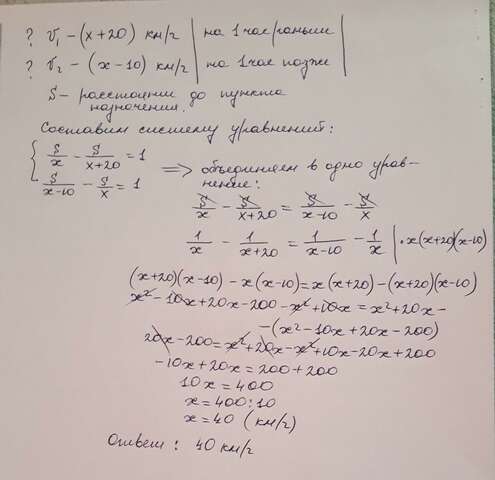 ? V₁ – (x+20) км/г | на 1 час раньше |
? V₂ – (x–10) км/г | на 1 час позже |
S – расстояние до пункта
назначения.
Составим систему уравнений:
{ S/x – S/(x+20) = 1
S/(x–10) – S/x = 1
=> объединяем в одно урав-
нение:
S/x – S/(x+20) = S/(x–10) – S/x
1/x – 1/(x+20) = 1/(x–10) – 1/x | · x(x+20)(x–10)
(x+20)(x–10) – x(x–10) = x(x+20) – (x+20)(x–10)
x² – 10x + 20x – 200 – x² + 10x = x² + 20x –
– (x² – 10x + 20x – 200)
20x – 200 = x² + 20x – x² + 10x – 20x + 200
–10x + 20x = 200 + 200
10x = 400
x = 400 : 10
x = 40 (км/г)
Ответ : 40 км/г